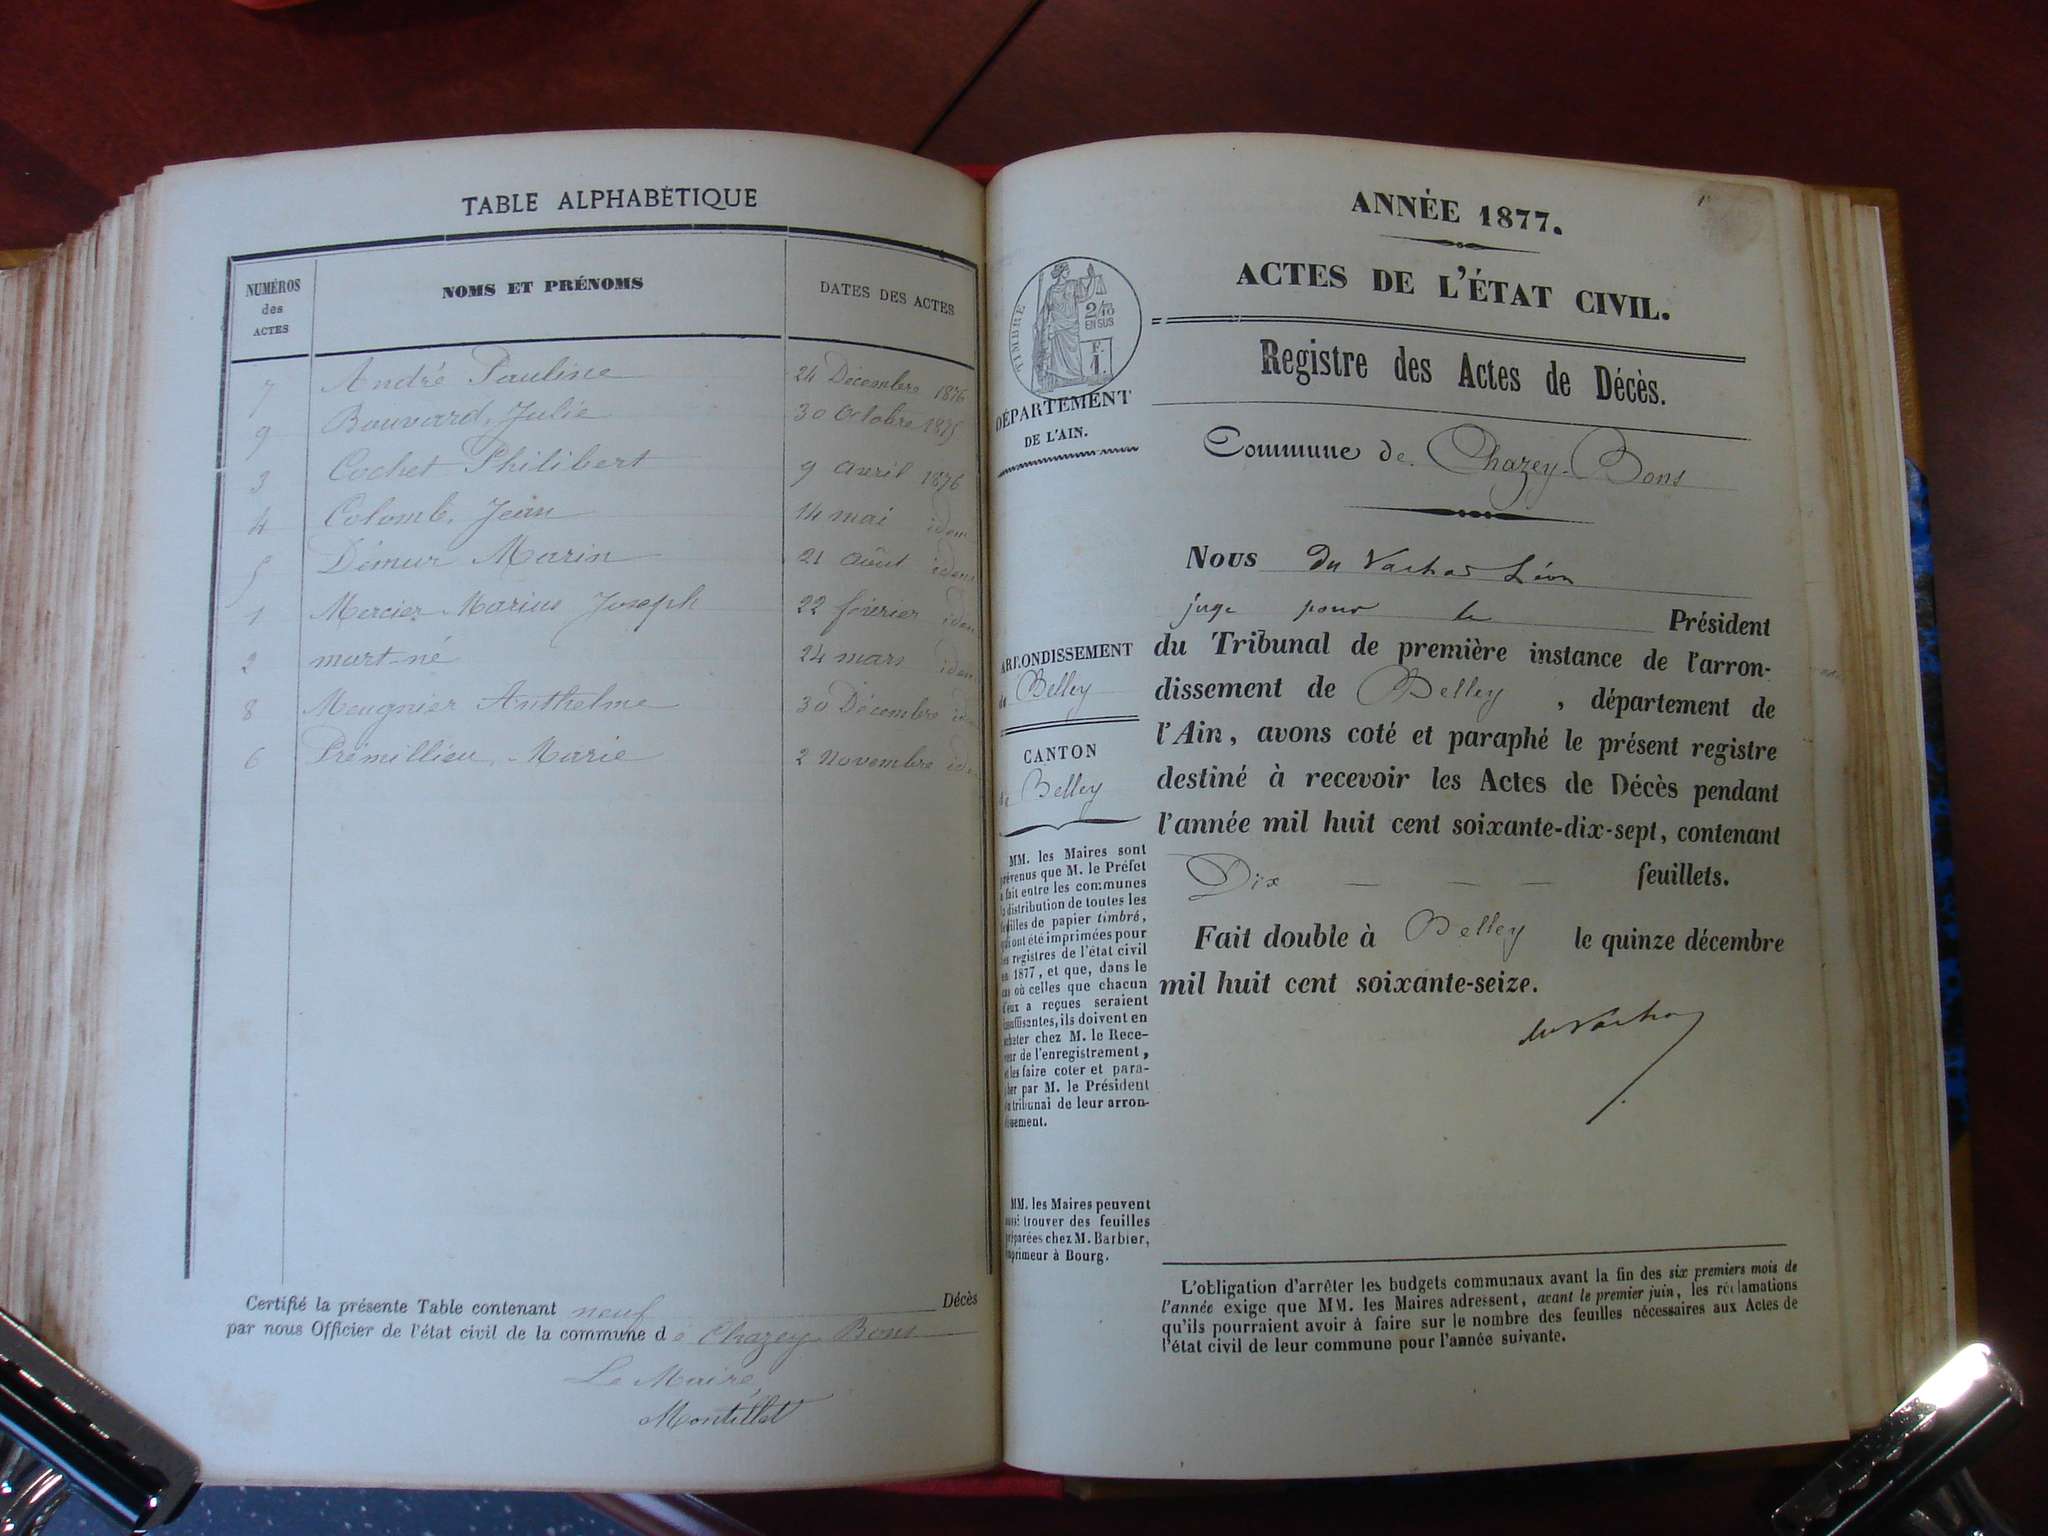 TABLE ALPHABÉTIQUE
NUMÉROS des ACTES NOMS ET PRÉNOMS DATES DES ACTES
7 André Pauline 24 Décembre 1876
9 Bouvard, Julie 30 Octobre 1875
3 Cochet Philibert 9 avril 1876
4 Colomb, Jean 14 mai idem
5 Démur Marin 21 août idem
1 Mercier Marius Joseph 22 février idem
2 mort-né 24 mars idem
8 Meugnier Anthelme 30 Décembre idem
6 Prémillieu, Marie 2 novembre idem
Certifié la présente Table contenant neuf Décès
par nous Officier de l'état civil de la commune de Chazey-Bons
Le Maire,
Montillet
ANNÉE 1877.
ACTES DE L'ÉTAT CIVIL.
Registre des Actes de Décès.
TIMBRE
2/10
EN SUS
F.
1.
DÉPARTEMENT
DE L'AIN.
Commune de Chazey-Bons
ARRONDISSEMENT
de Belley
CANTON
de Belley
MM. les Maires sont
prévenus que M. le Préfet
a fait entre les communes
la distribution de toutes les
feuilles de papier timbré,
qui ont été imprimées pour
les registres de l'état civil
en 1877, et que, dans le
cas où celles que chacun
d'eux a reçues seraient
insuffisantes, ils doivent en
acheter chez M. le Rece-
veur de l'enregistrement,
et les faire coter et para-
pher par M. le Président
du tribunal de leur arron-
dissement.
MM. les Maires peuvent
aussi trouver des feuilles
préparées chez M. Barbier,
imprimeur à Bourg.
Nous du Vachat Léon
juge pour le Président
du Tribunal de première instance de l'arron-
dissement de Belley, département de
l'Ain, avons coté et paraphé le présent registre
destiné à recevoir les Actes de Décès pendant
l'année mil huit cent soixante-dix-sept, contenant
Dix — — — feuillets.
Fait double à Belley le quinze décembre
mil huit cent soixante-seize.
du Vachat
L'obligation d'arrêter les budgets communaux avant la fin des six premiers mois de
l'année exige que MM. les Maires adressent, avant le premier juin, les réclamations
qu'ils pourraient avoir à faire sur le nombre des feuilles nécessaires aux Actes de
l'état civil de leur commune pour l'année suivante.